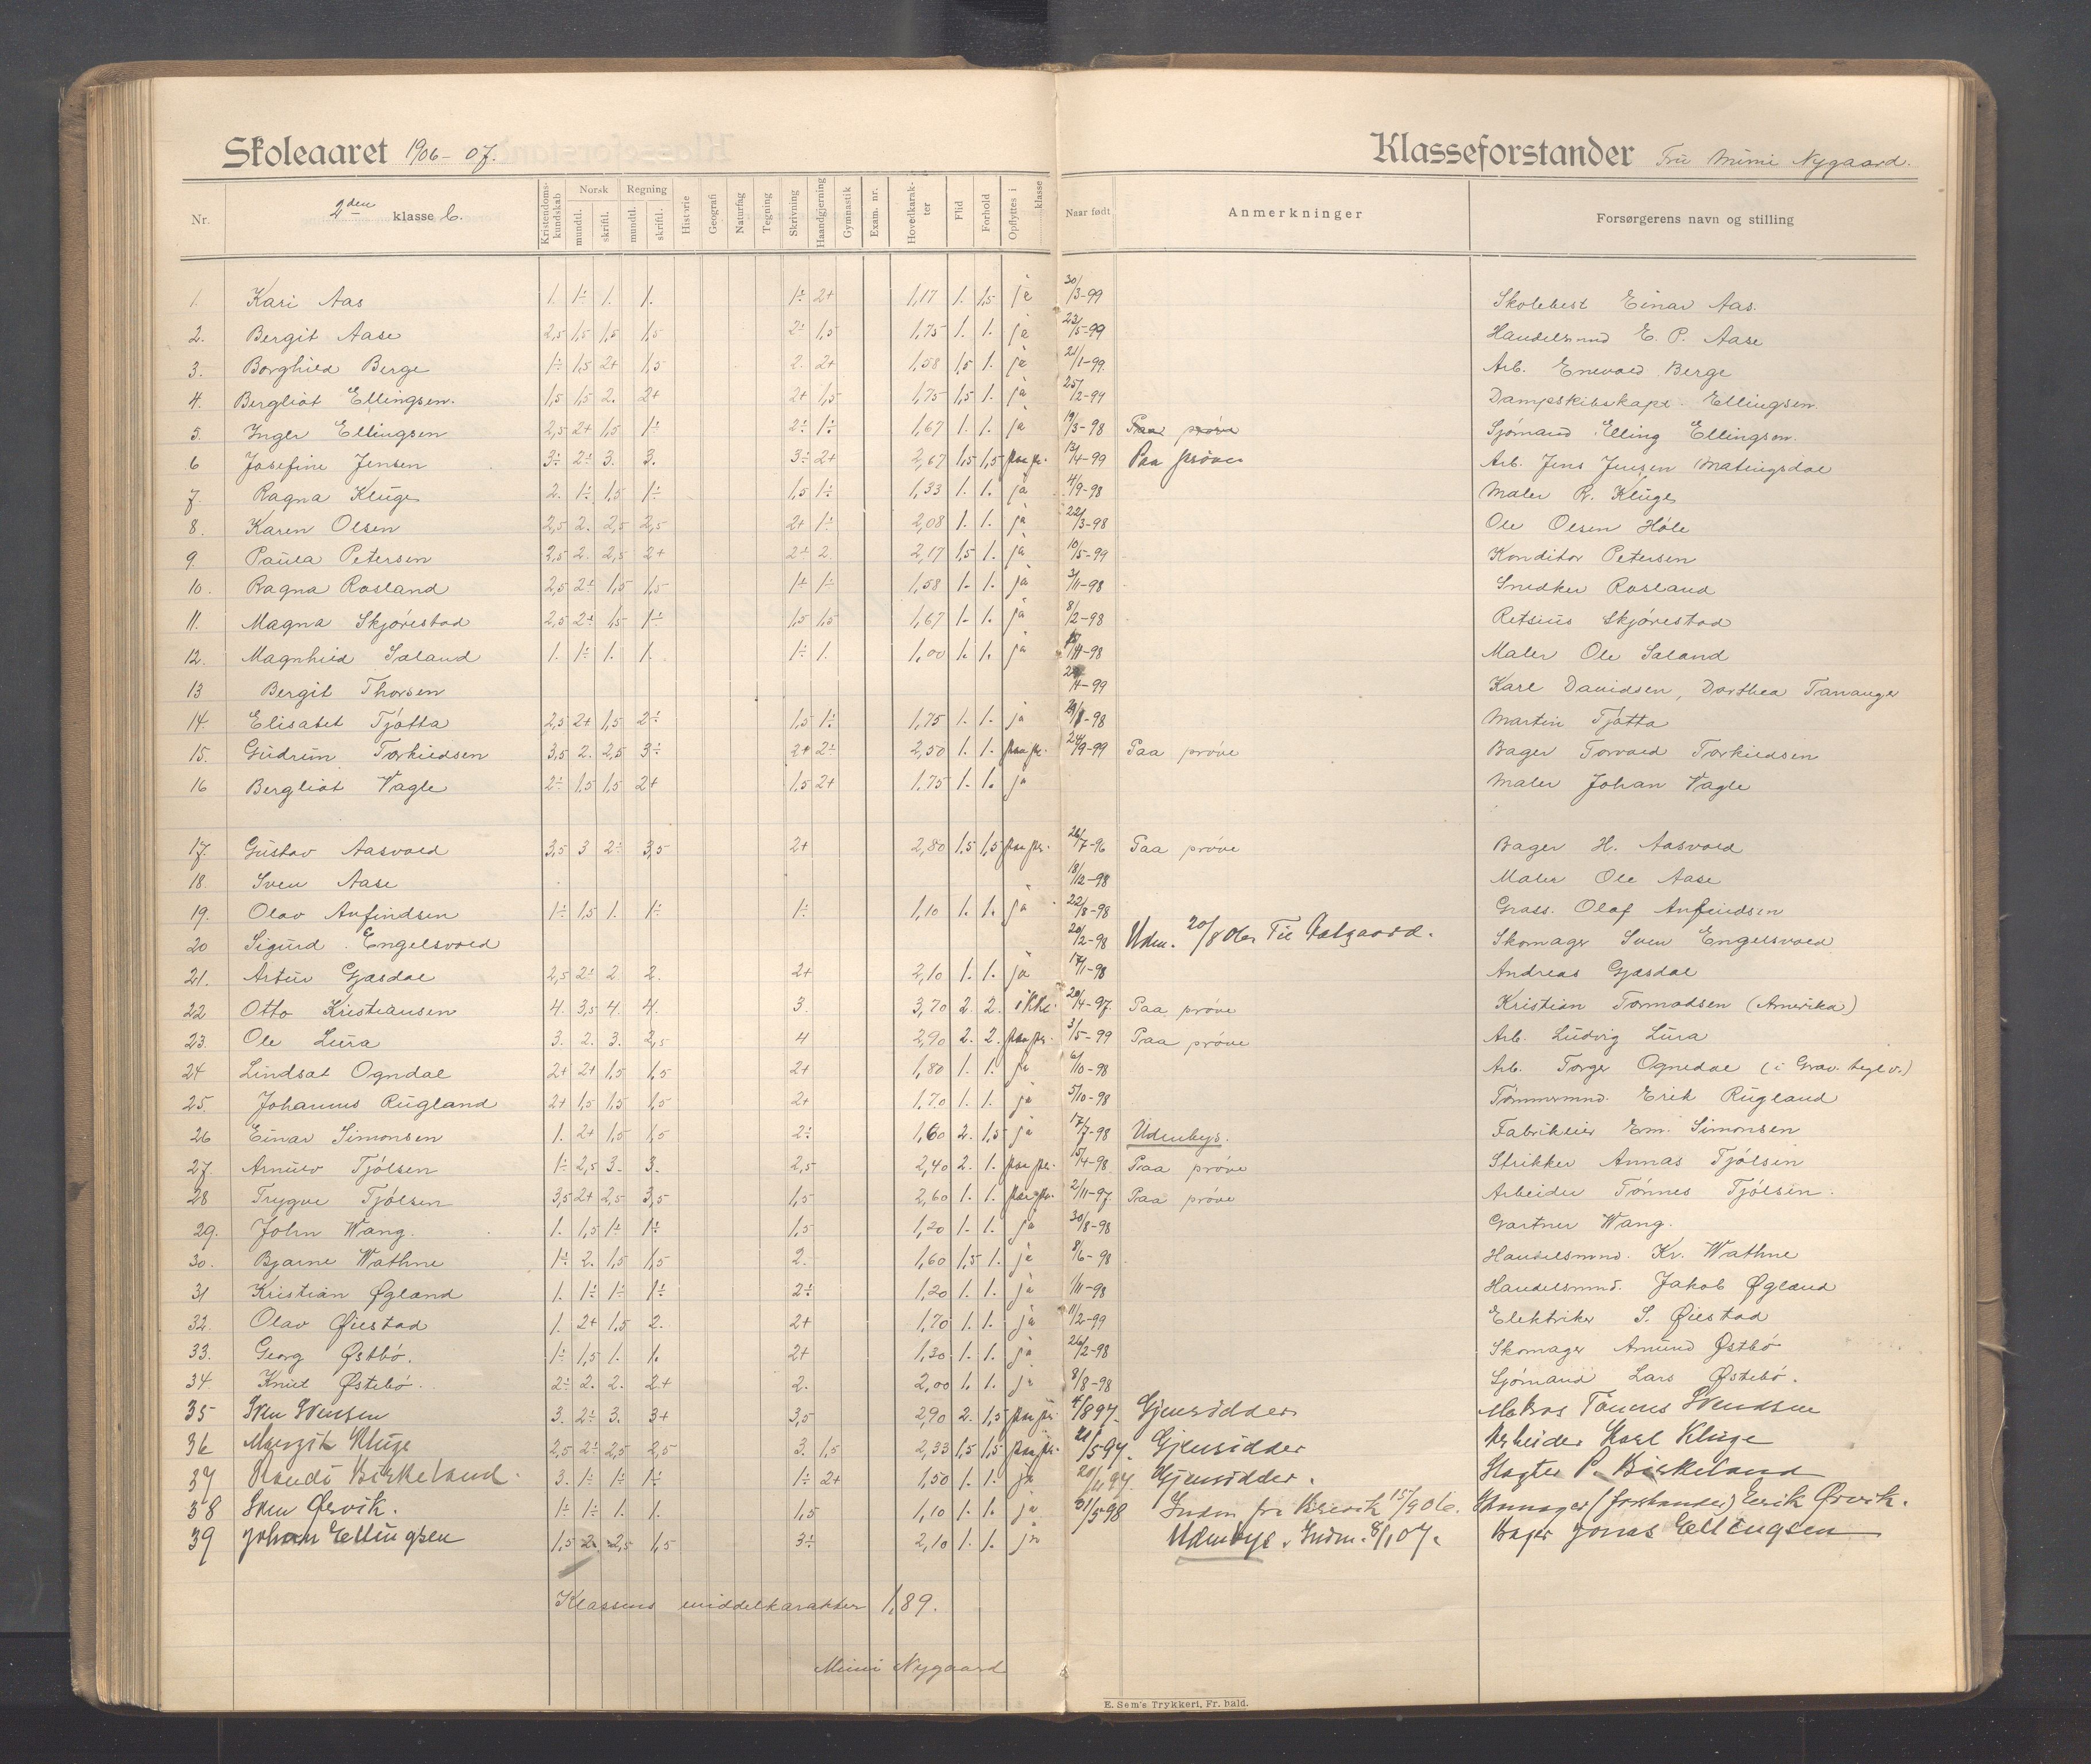 Skoleaaret 1906-07.
Klasseforstander Fru Mimi Nygaard.
Nr. 2den klasse b. Kristendomskundskab Norsk mundtl. skriftl. Regning mundtl. skriftl. Historie Geografi Naturfag Tegning Skrivning Haandgjerning Gymnastik Exam. nr. Hovedkarakter Flid Forhold Opflyttes i klasse Naar født Anmerkninger Forsørgerens navn og stilling
1. Kari Aas 1. 1÷ 1. 1. 1÷ 2+ 1,17 1. 1,5 ja 30/3-99 Skolebest Einar Aas.
2. Bergit Aase 2,5 1,5 1,5 1,5 2÷ 1,5 1,75 1. 1. ja 23/5-99 Handelsmnd E. P. Aase
3. Borghild Berge 1÷ 1,5 2+ 1,5 2. 2+ 1,58 1,5 1. ja 21/1-99. Arb. Enevald Berge
4. Bergliot Ellingsen. 1,5 1,5 2. 2+ 2+ 1,5 1,75 1,5 1. ja 25/2-99 Dampskibskapt. Ellingsen.
5. Inger Ellingsen 2,5 2+ 1,5 1÷ 2÷ 1÷ 1,67 1. 1. ja 19/3-98 Paa prøve Sjømand Elling Ellingsen.
6 Josefine Jensen 3÷ 2÷ 3. 3. 3÷ 2+ 2,67 1,5 1,5 paa pr. 13/4-99 Paa prøve Arb. Jens Jensen Matingsdal
7. Ragna Kluge 2. 1÷ 1,5 1÷ 1,5 1÷ 1,33 1. 1. ja 4/9-98 Maler R. Kluge
8. Karen Olsen 2,5 2. 2,5 2,5 2+ 1÷ 2,08 1. 1. ja 22/3-98 Ole Olsen Høle
9. Paula Petersen 3,5 2. 2,5 2+ 2÷ 2. 2,17 1,5 1. ja 10/5-99 Konditor Petersen
10. Ragna Rosland 2,5 2÷ 1,5 1,5 1÷ 1÷ 1,58 1. 1. ja 3/11-98 Snedker Rosland
11. Magna Skjørestad 2,5 2÷ 1,5 1÷ 1,5 1,5 1,67 1. 1. ja 8/2-98 Retsius Skjørestad
12. Magnhild Søland 1. 1÷ 1. 1. 1÷ 1. 1,00 1. 1. ja Maler Ole Søland
13 Bergit Thorsen Karl Davidsen, Dorthea Tananger
14. Elisabet Tjøtta 2,5 2+ 1,5 2÷ 1,5 1÷ 1,75 1. 1. ja Martin Tjøtta
15. Gudrun Torkildsen 3,5 2. 2,5 3÷ 2+ 2÷ 2,50 1. 1. paa pr. 24/9-99 Paa prøve Bager Torvald Torkildsen
16 Bergliot Vagle 2÷ 1,5 1,5 2+ 1,5 2+ 1.75 1. 1. ja Maler Johan Vagle
17. Gustav Aasvold 3,5 3 2÷ 3,5 2+ 2,80 1,5 1,5 paa pr. 26/7-96 Paa prøve Bager H. Aasvold
18. Sven Aase 18/12-98 Maler Ole Aase
19. Olav Anfindsen 1÷ 1,5 1. 1÷ 1÷ 1,10 1. 1. ja 22/8-98 Grass. Olaf Anfindsen
20 Sigurd Engelsvold 20/2-98 Udm. 20/8 06 Til Aalgaard. Skomager Sven Engelsvold
21. Artur Gjesdal 2,5 2÷ 2 2. 2+ 2,10 1. 1. ja 17/1-98 Andreas Gjesdal
22 Otto Kristiansen 4. 3,5 4. 4. 3. 3,70 2. 2. ikke. 20/4-97. Paa prøve Kristian Tormodsen (Amerika)
23. Ole Lura 3. 2. 3. 2,5 4 2,90 2. 2. paa pr. 3/5-99 Paa prøve Arb. Ludvig Lura
24 Lindsat Ogndal 2+ 2+ 1,5 1,5 2+ 1,80 1. 1. ja 6/10-98 Arb. Torger Ognedal (i Grav. teglv.)
25. Johannes Rugland 2+ 1,5 1,5 1,5 2+ 1,70 1. 1. ja 5/10-98 Tømmermnd. Erik Rugland
26 Einar Simonsen 1. 2+ 1,5 1,5 2÷ 1,60 2. 1,5 ja 17/7-98 Udenbys. Fabrikeier Em. Simonsen
27. Arnulv Tjølsen 1÷ 2,5 3. 3. 2,5 2,40 2. 1. paa pr. 15/4-98. Paa prøve Strikker Annas Tjølsen
28 Trygve Tjølsen 3,5 2+ 2,5 3,5 1,5 2,60 1. 1. paa pr. 2/11-97. Paa prøve Arbeider Tønnes Tjølsen.
29. John Wang. 1. 1,5 1÷ 1÷ 1,5 1,20 1. 1. ja 30/8-98 Gartner Wang.
30. Bjarne Wathne 1÷ 2. 1,5 1,5 2. 1,60 1,5 1. ja 8/6-98 Handelsmnd. Kr. Wathne
31 Kristian Øgland 1. 1÷ 1÷ 1÷ 2÷ 1,20 1. 1. ja 1/11-98 Handelsmnd. Jakob Øgland
32. Olav Øiestad 1. 2+ 1,5 2. 2+ 1,70 1. 1. ja 11/2-99 Elektriker S. Øiestad
33. Georg Østbø. 1÷ 1,5 1. 1. 2+ 1,30 1. 1. ja 26/2-98 Skomager Amund Østbø
34. Knut Østebø. 2÷ 2. 2. 2+ 2. 2,00 1. 1. ja 8/8-98 Sjømand Lars Østebø.
35 Sven Svensen 3. 2÷ 3. 3+ 3,5 2,90 2. 1,5 paa pr. 4/8 97. Gjensidder Matros Tønnes Svendsen
36 Margit Kluge 2,5 2÷ 2,5 2,5 3. 1,5 2,33 1,5 1,5 paa pr. 21/5 97. Gjensidder Arbeider Karl Kluge
37 Randi Birkeland. 3. 1÷ 1÷ 1÷ 1÷ 2+ 1,50 1. 1. ja Gjensidder. Slagter P. Birkeland
38 Sven Ørvik. 1÷ 1÷ 1. 1. 1,5 1,10 1. 1. ja 31/5 98 Indm fra 15/9 06. Skomager (forstander) Erik Ørvik.
39 Johan Ellingsen 1,5 2. 2,5 1,5 3÷ 2,10 1. 1. ja Udenbys. Indm. 8/1 07. Bager Jonas Ellingsen
Klassens middelkarakter 1,89.
Mimi Nygaard
E. Sem's Trykkeri, Fr. hald.